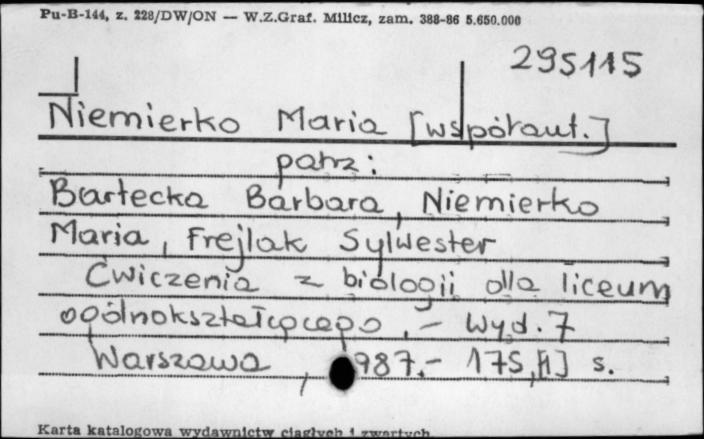 Pu-B-144, z. 228/DW/ON — W.Z.Graf. Milicz, zam. 388-86 5.650.000
295115
Niemierko Maria [współaut.]
patrz:
Bartecka Barbara, Niemierko
Maria, Frejlak Sylwester
Ćwiczenia z biologii dla liceum
ogólnokształcącego. – Wyd. 7
Warszawa, 987.- 175,[1] s.
Karta katalogowa wydawnictw ciągłych i zwartych